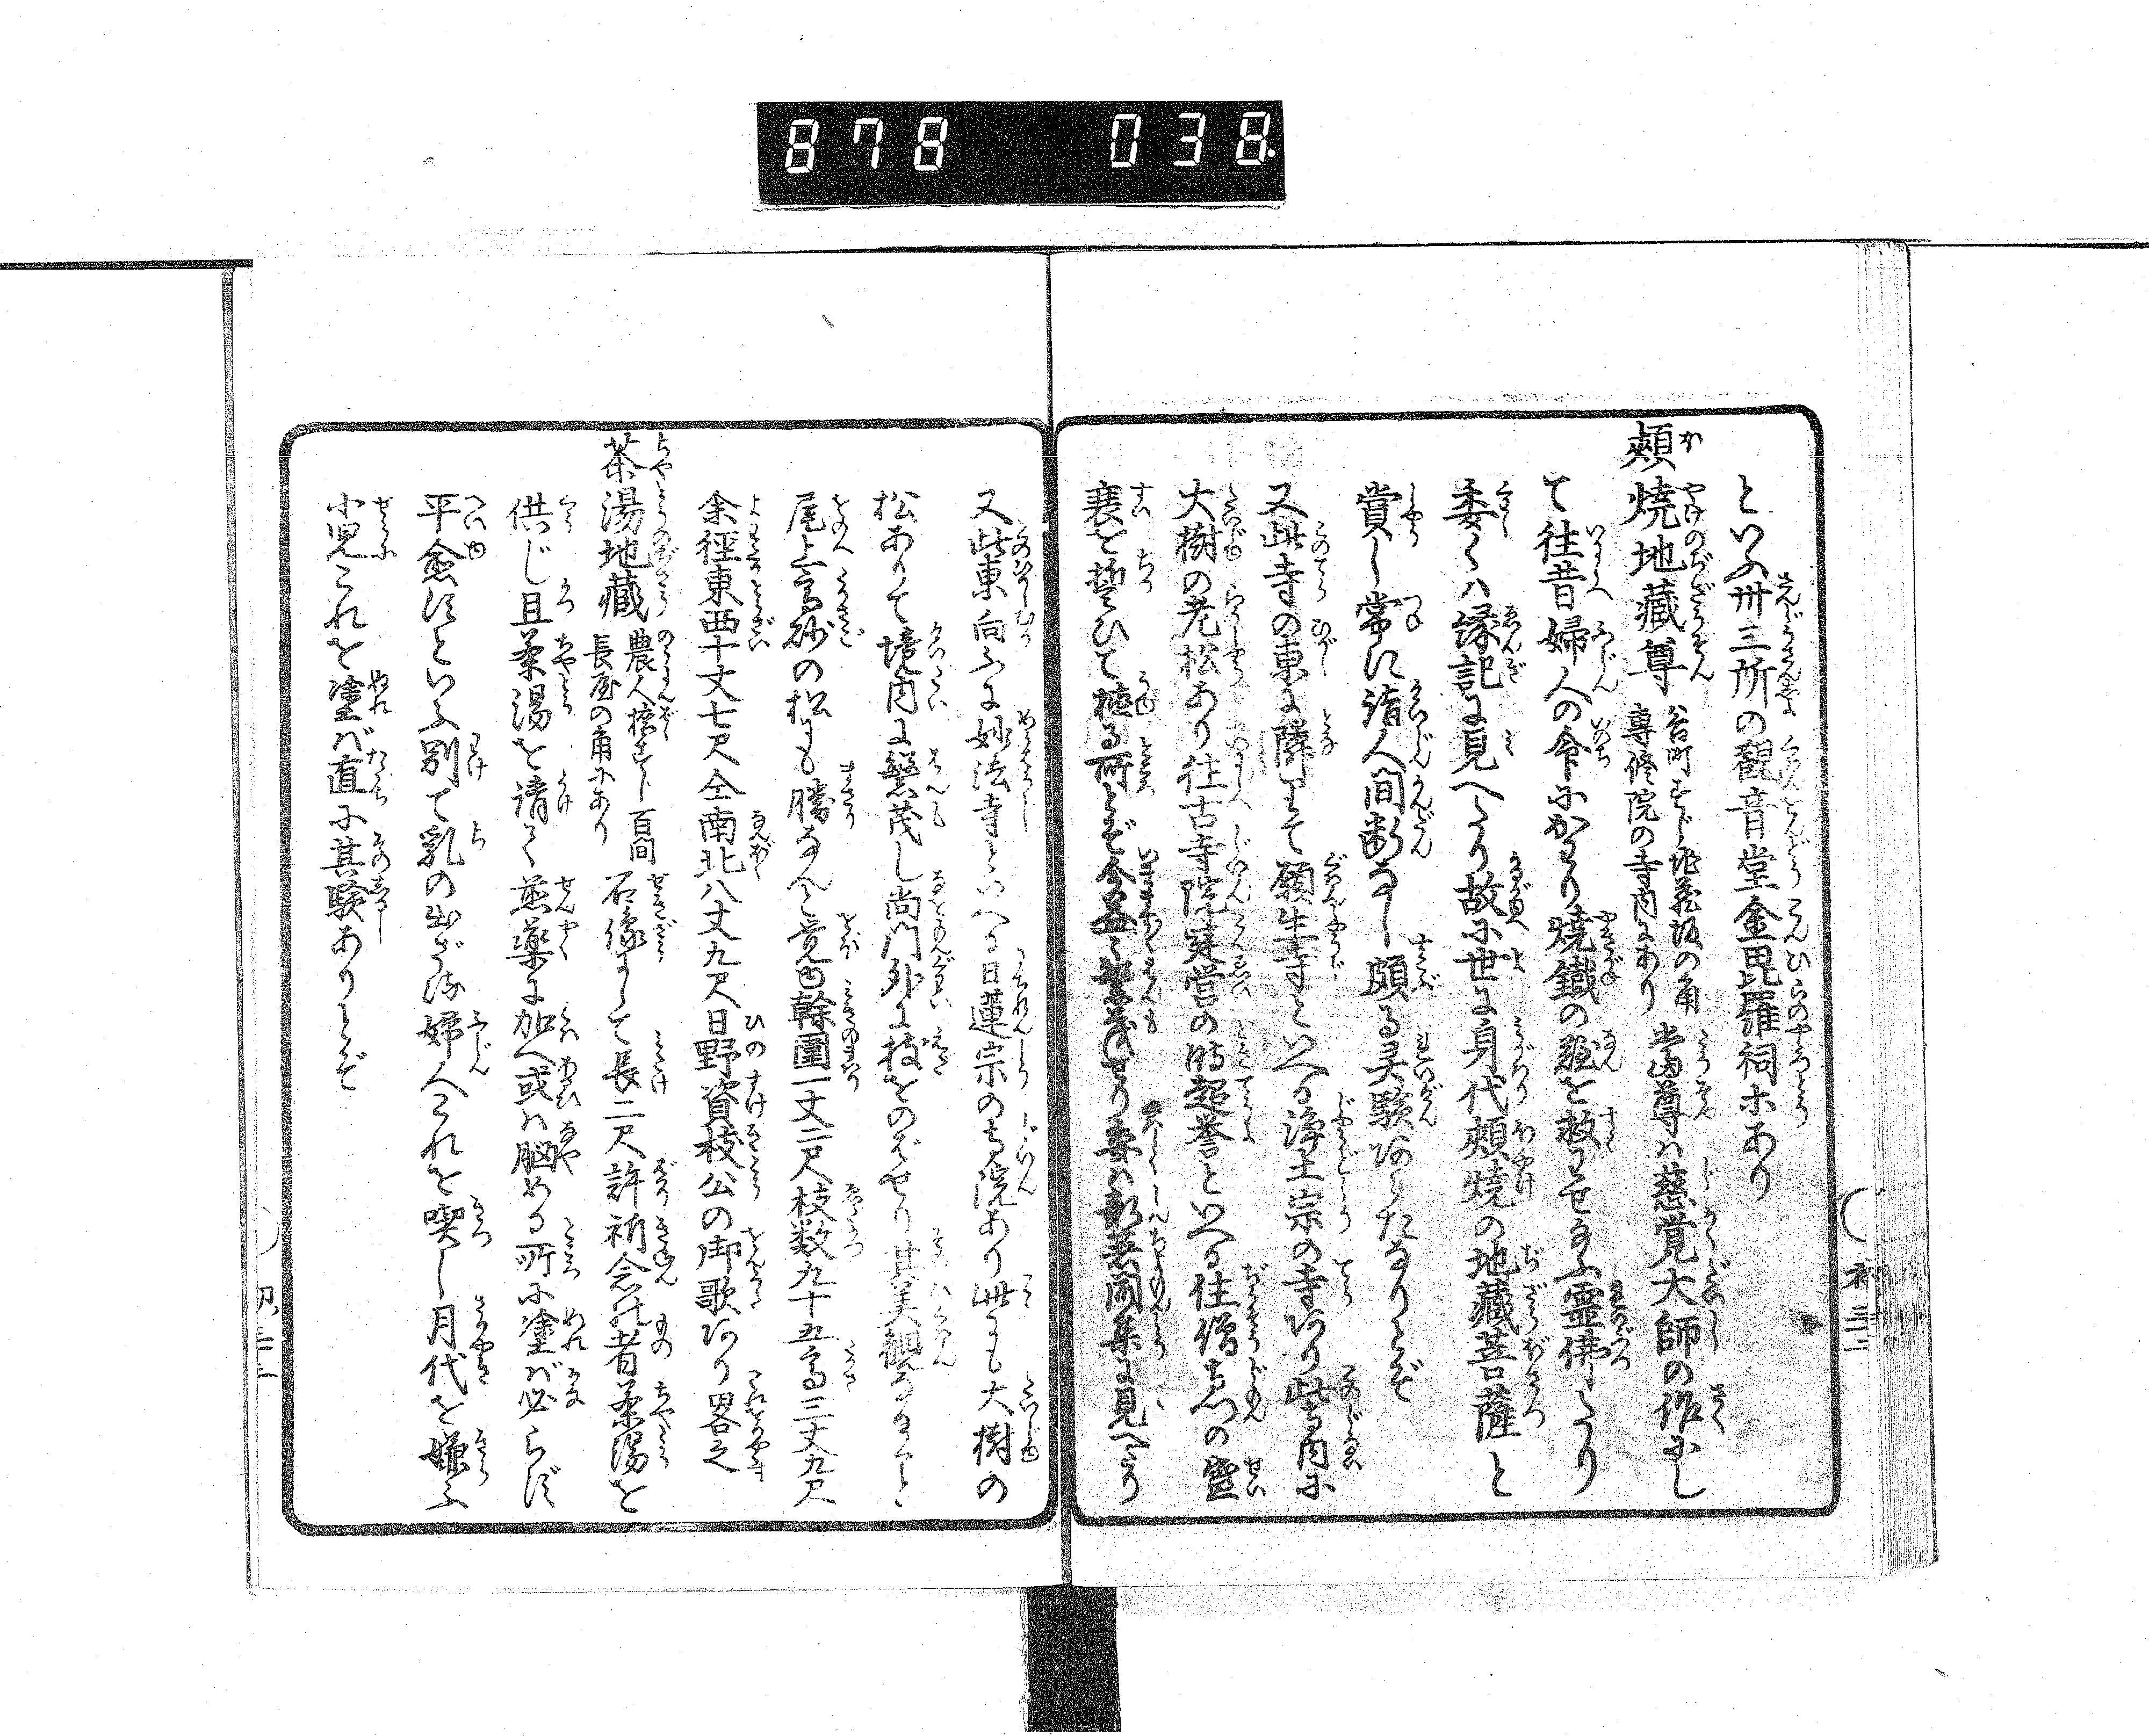 878 038
といふ卅三所の観音堂金毘羅祠ホあり
頬焼地蔵尊 谷町すじ地蔵坂の角 専修院の寺内にあり 当尊ハ慈覚大師の作にし
て往昔婦人の命にかわり焼鐵の難を救わせ給ふ霊佛したり
委くハ縁記に見へたり故に世に身代頬焼の地蔵菩薩と
賞し常に詣人間断なし頗る灵験ありたなりとぞ
又此寺の東に隣りて願生寺といへる浄土宗の寺あり此寺内に
大樹の老松あり往古寺院建営の時超誉といへる住僧ちつの盛
衰を誓ひて植る所とぞ今益々繁茂せり委ハ新著聞集に見へたり
又此東向ふに妙法寺といへる日蓮宗の寺院あり此にも大樹の
松ありて境内に繁茂し尚門外に枝をのばせり其美観なること
尾上高砂の松にも勝なんと覚ゆ幹囲一丈二尺枝数九十五高三丈九尺
余径東西十丈七尺仝南北八丈九尺日野資枝公の御歌あり畧之
茶湯地蔵 農人橋すじ百間 長屋の角にあり 石像にして長二尺許祈念の者茶湯を
供じ且茶湯を請て煎薬に加へ或ハ脳める所に塗れバ必らず
平愈すといふ別て乳の出ざる婦人これを喫し月代を嫌ふ
小児これを塗バ直に其験ありとぞ